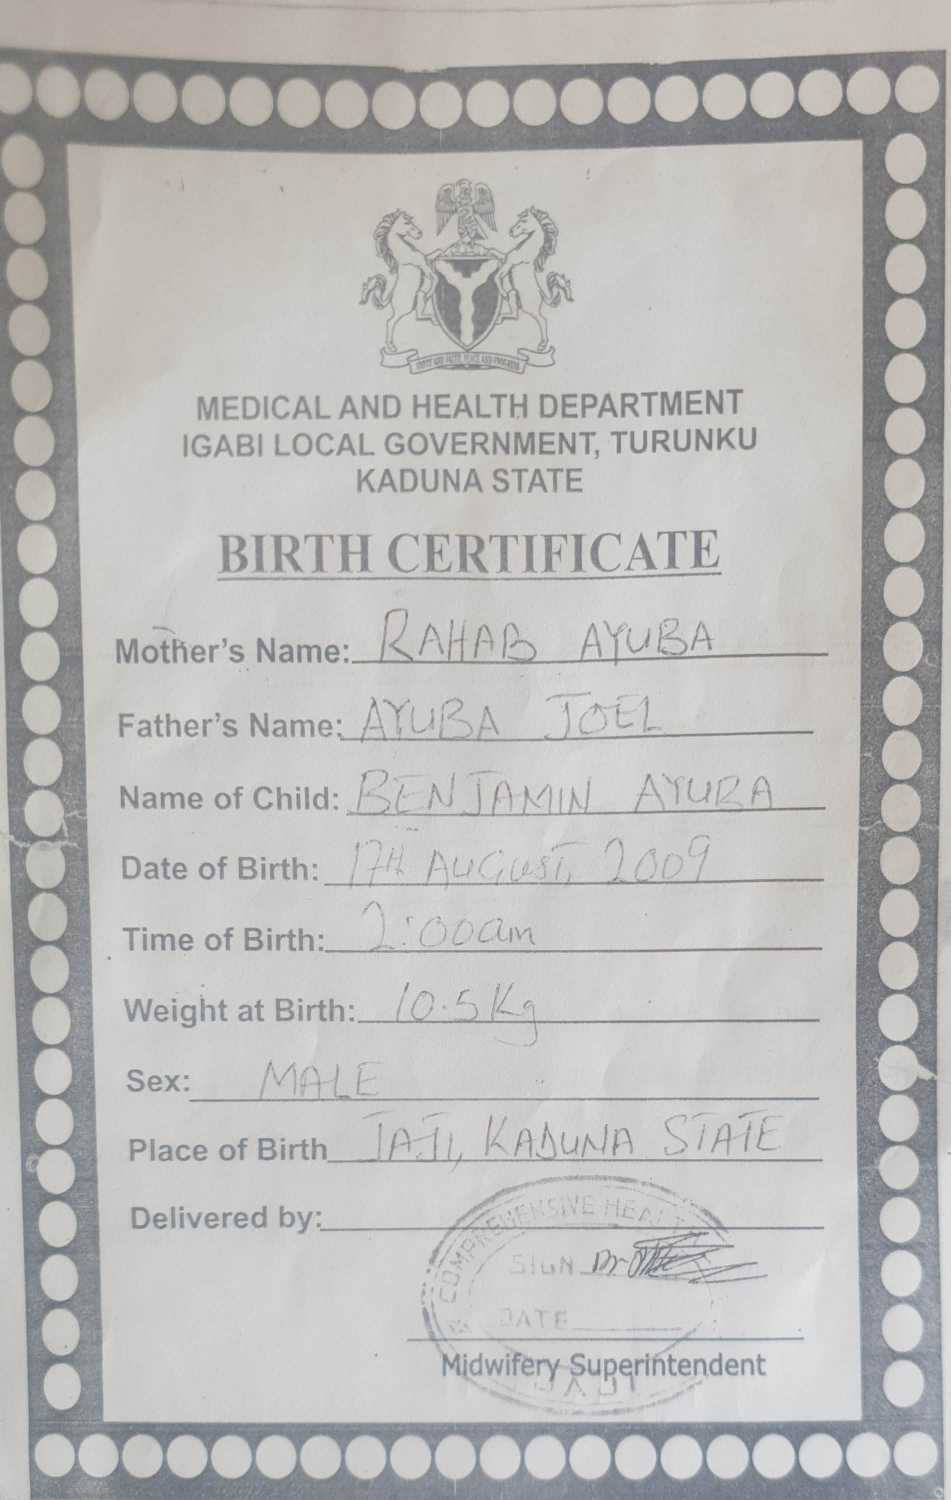 UNITY AND FAITH, PEACE AND PROGRESS
MEDICAL AND HEALTH DEPARTMENT
IGABI LOCAL GOVERNMENT, TURUNKU
KADUNA STATE
BIRTH CERTIFICATE
Mother's Name: RAHAB AYUBA
Father's Name: AYUBA JOEL
Name of Child: BENJAMIN AYUBA
Date of Birth: 17TH AUGUST, 2009
Time of Birth: 2:00am
Weight at Birth: 10.5Kg
Sex: MALE
Place of Birth JAJI, KADUNA STATE
Delivered by:
COMPREHENSIVE HEALTH
SIGN Dr
DATE
Midwifery Superintendent
JAJI